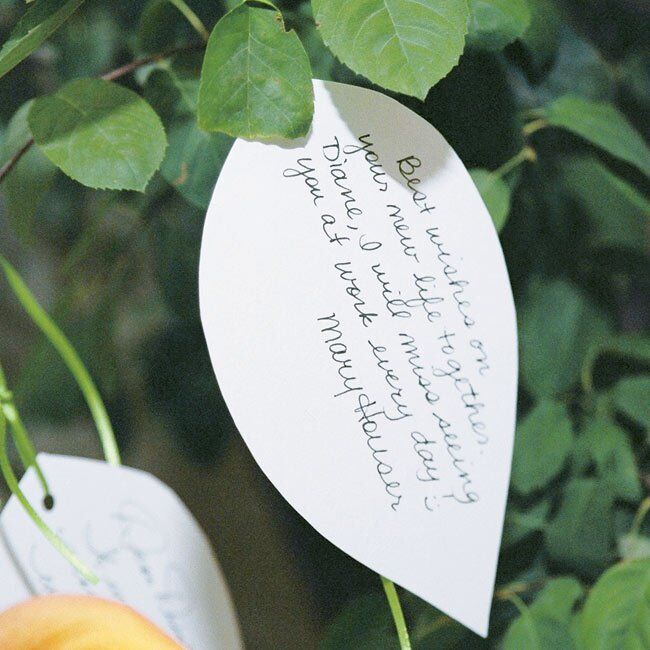 Best wishes on
your new life together.
Diane, I will miss seeing
you at work every day :)
Mary Houser